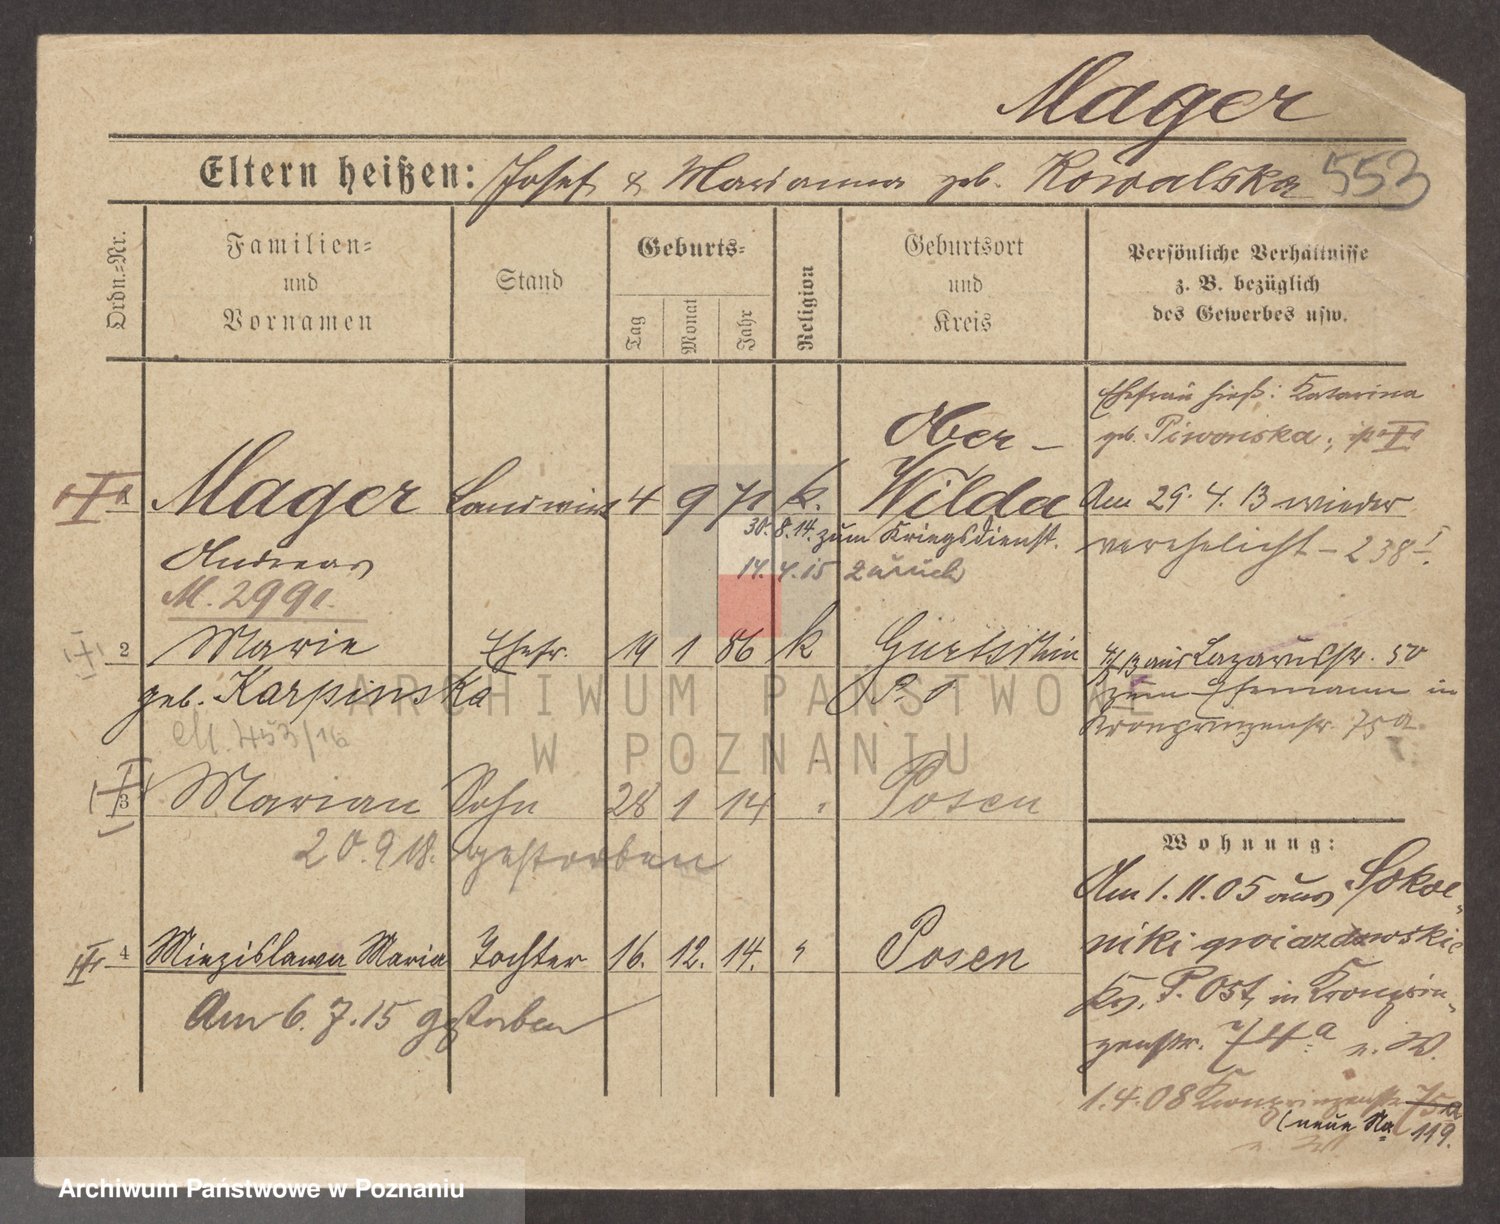 Mager
Eltern heißen: Josef & Marianna geb. Kowalska 553
Ordn.=Nr.
Familien= und Vornamen
Stand
Geburts=
Tag
Monat
Jahr
Religion
Geburtsort und Kreis
Persönliche Verhältnisse
z. B. bezüglich
des Gewerbes usw.
Ehefrau hieß: Katarina
geb. Piwonska;
Ober-
Mager Landwirt 4 9 71 k. Wilda
Am 29. 4. 13 wieder
verehelicht - 238
30. 8. 14. zum Kriegsdienst.
Andreas
14. 4. 15 zurück
M. 2991.
2 Marie Ehefr. 19 1 86 k
geb. Karpinska P. O
aus Lazarusstr. 50
zum Ehemann in
Kronprinzenstr. 75a.
453/16
ARCHIWUM PAŃSTWOWE
W POZNANIU
3 Marian Sohn 28 1 14 " Posen
20. 9 18. gestorben
Wohnung:
Am 1. 11. 05 aus Sokol-
niki gwiazdowskie
Krs. P. Ost, in Kronprin-
zenstr. 74a n. W.
4 Miezislawa Maria Tochter 16. 12. 14. " Posen
Am 6. 7. 15 gestorben
1. 4. 08 Kronprinzenstr. 75a
(neue No 119.
Archiwum Państwowe w Poznaniu